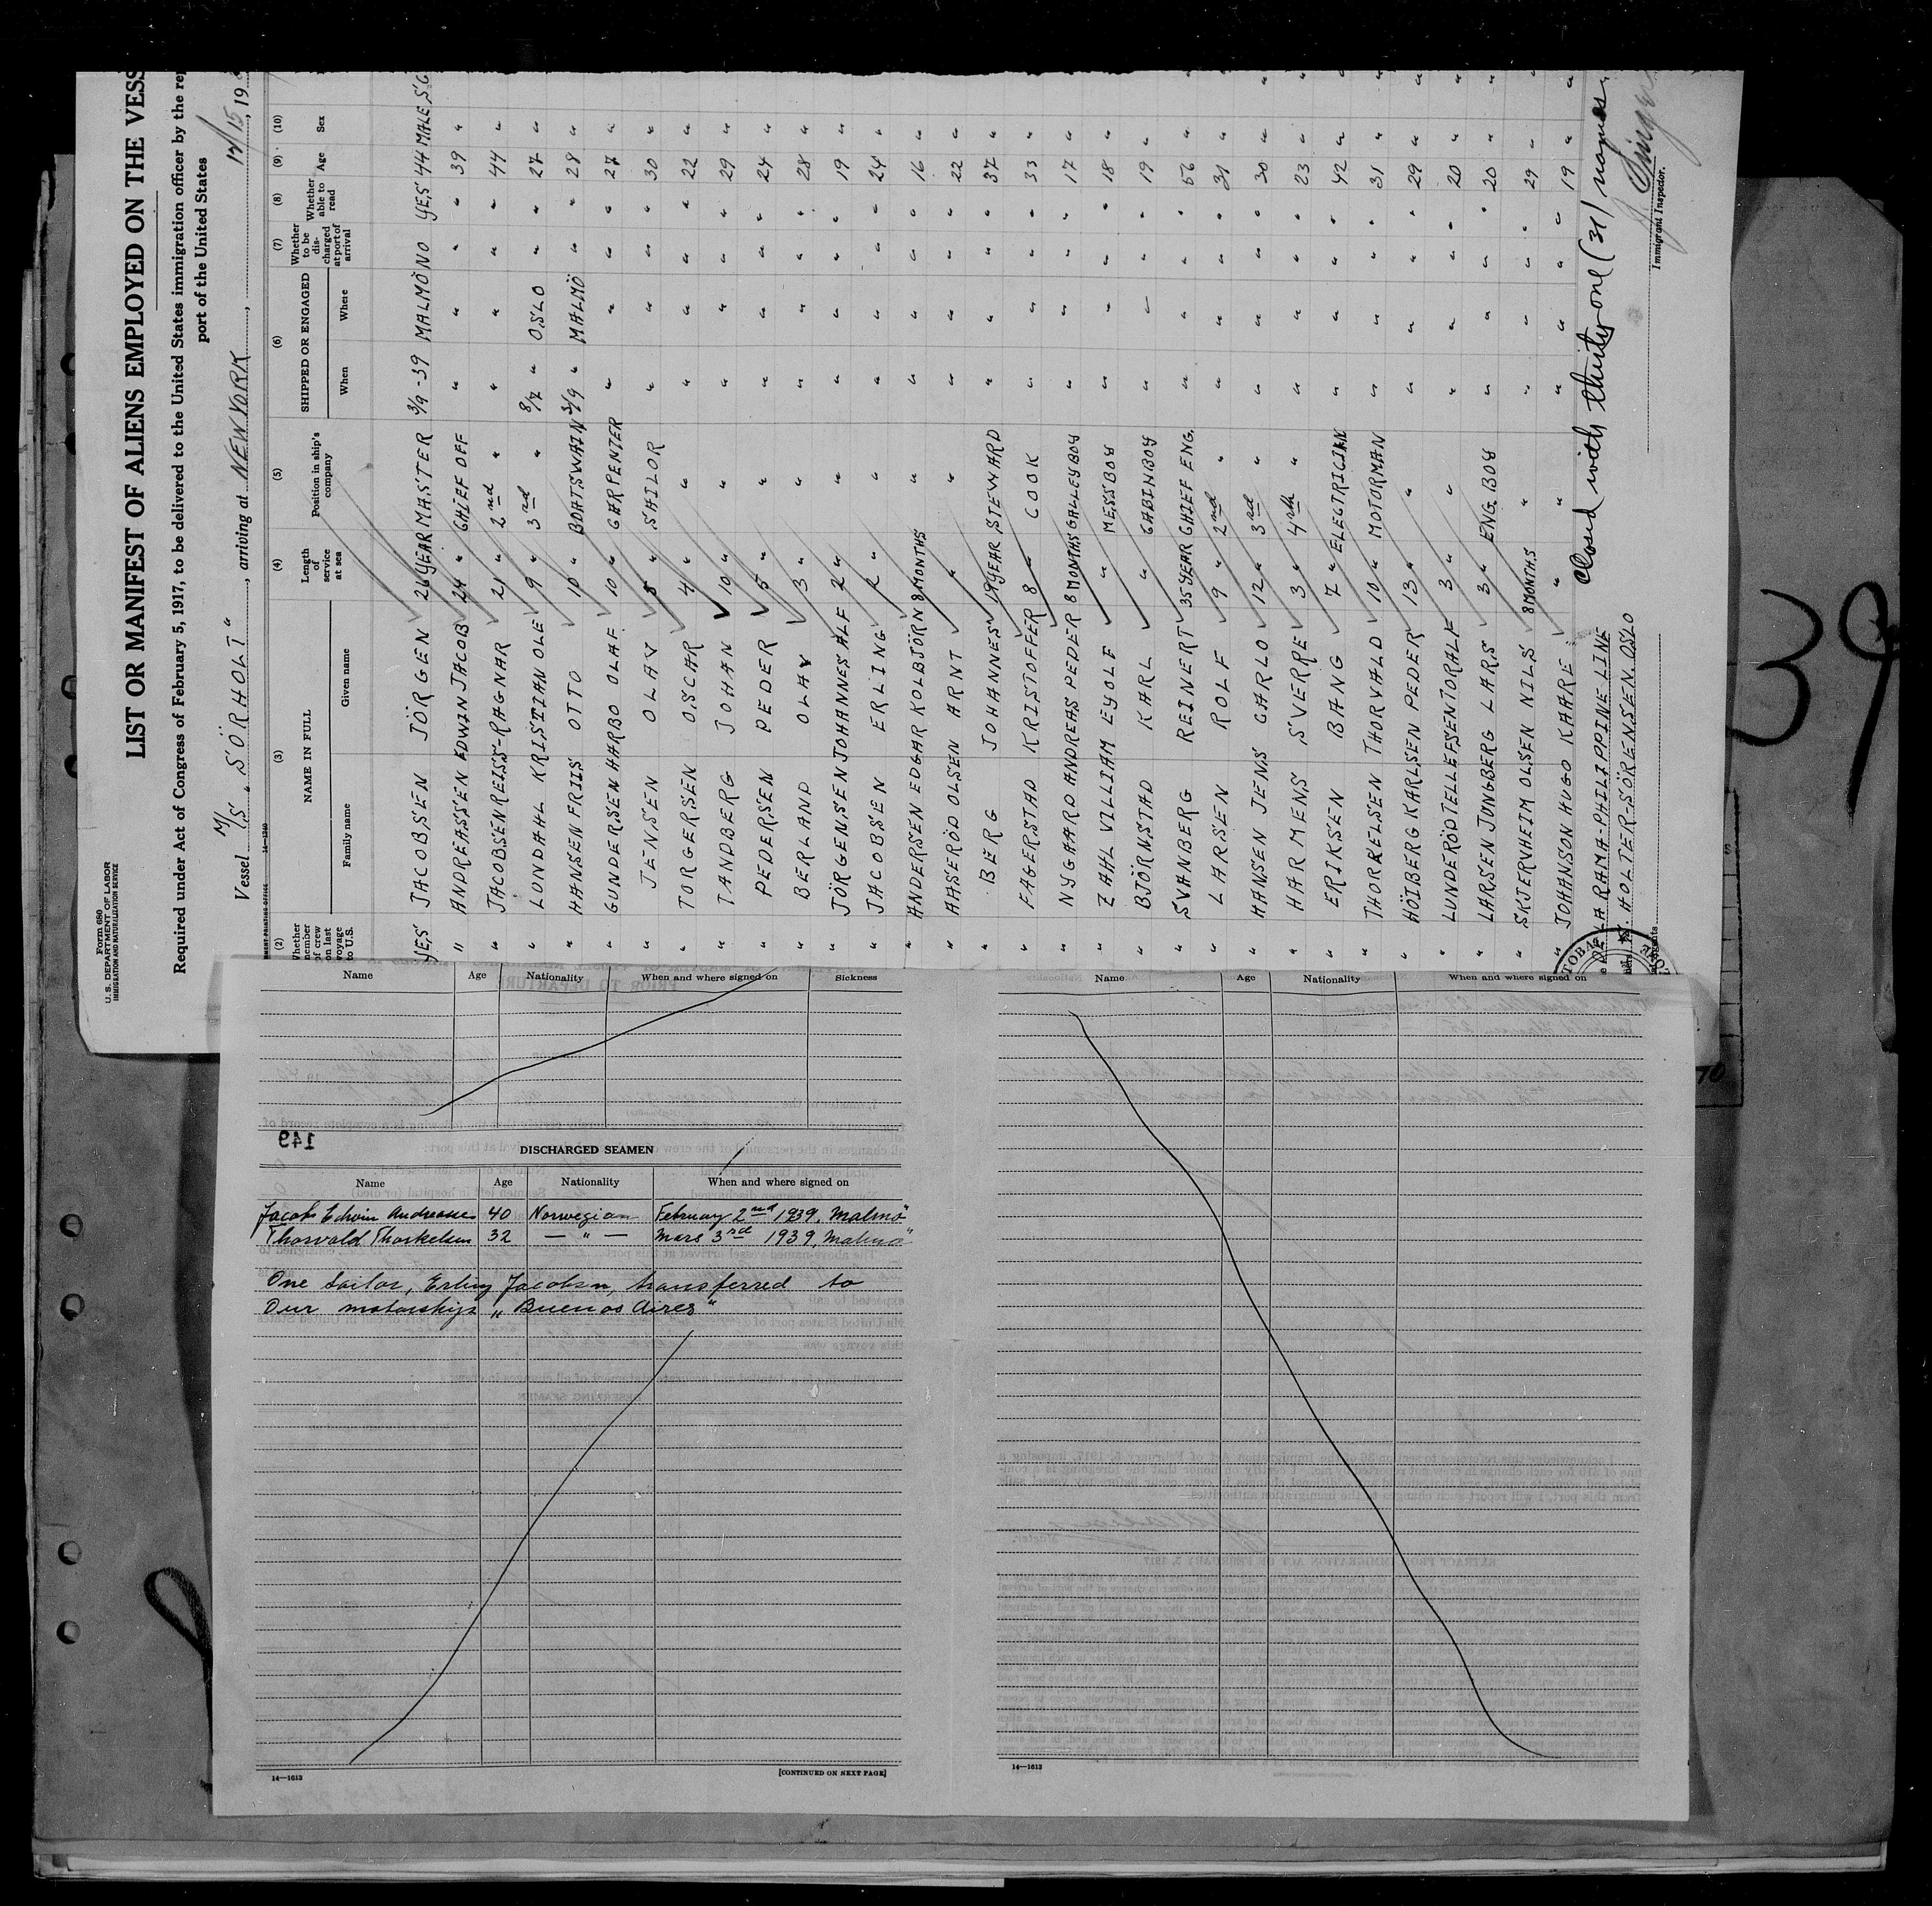 Form 680
U. S. DEPARTMENT OF LABOR
IMMIGRATION AND NATURALIZATION SERVICE
LIST OR MANIFEST OF ALIENS EMPLOYED ON THE VESS
Required under Act of Congress of February 5, 1917, to be delivered to the United States immigration officer by the rep
port of the United States
Vessel M/S "SÖRHOLT", arriving at NEW YORK, 12/15, 19
14—1240
(2) (3) (4) (5) (6) (7) (8) (9) (10)
Whether member of crew on last voyage to U.S. NAME IN FULL Length of service at sea Position in ship's company SHIPPED OR ENGAGED Whether to be discharged at port of arrival Whether able to read Age Sex
Family name Given name When Where
YES JACOBSEN JÖRGEN 26 YEAR MASTER 3/9 -39 MALMÖ NO YES 44 MALE SC
" ANDREASSEN EDWIN JACOB 24 " CHIEF OFF " " " " 39 "
" JACOBSEN REISS-RAGNAR 21 " 2nd " " " " " 44 "
" LONDAHL KRISTIAN OLE 9 " 3rd " 8/7 " OSLO " " 27 "
" HANSEN FRIIS OTTO 10 " BOATSWAIN 3/9 " MALMÖ " " 28 "
" GUNDERSEN HARBO OLAF 10 " CARPENTER " " " " 27 "
" JENSSEN OLAV 8 " SAILOR " " " " 30 "
" TORGERSEN OSCAR 4 " " " " " " 22 "
" TANDBERG JOHAN 10 " " " " " " 29 "
" PEDERSEN PEDER 5 " " " " " " 24 "
" BERLAND OLAV 3 " " " " " " 28 "
" JÖRGENSEN JOHANNES ALF 2 " " " " " " 19 "
" JACOBSEN ERLING 2 " " " " " " 24 "
" ANDERSEN EDGAR KOLBJÖRN 8 MONTHS " " " " " 16 "
" AASERÖD OLSEN ARNT " " " " " " 22 "
" BERG JOHANNES 19 YEAR STEWARD " " " " 37 "
" FAGERSTAD KRISTOFFER 8 " COOK " " " " 33 "
" NYGAARD ANDREAS PEDER 8 MONTHS GALLEY BOY " " " " 17 "
" ZAHL VILLIAM EYOLF " MESS BOY " " " " 18 "
" BJÖRNSTAD KARL " CABIN BOY " — " " 19 "
" SVANBERG REINERT 35 YEAR CHIEF ENG. " " " " 56 "
" LARSEN ROLF 9 " 2nd " " " " " 31 "
" HANSEN JENS CARLO 12 " 3rd " " " " " 30 "
" HARMENS SVERRE 3 " 4th " " " " " 23 "
" ERIKSEN BANG 7 " ELECTRICIAN " " " " 42 "
" THORKELSEN THORVALD 10 " MOTORMAN " " " " 31 "
" HÖIBERG KARLSEN PEDER 13 " " " " " " 29 "
" LUNDERÖD TELLEFSEN TORALF 3 " " " " " " 20 "
" LARSEN JUNGBERG LARS 3 " ENG. BOY " " " " 20 "
" SKJERVHEIM OLSEN NILS 8 MONTHS " " " " " 29 "
" JOHANSON HUGO KAARE " " " " " " 19 "
Closed with thirty one (31) names
DE LA RAMA-PHILIPPINE LINE
HOLTER-SÖRENSEN. OSLO
Immigrant Inspector.
39
Name Age Nationality When and where signed on Sickness
149
DISCHARGED SEAMEN
Name Age Nationality When and where signed on
Jacob Edwin Andreassen 40 Norwegian February 2nd 1939, Malmö
Thorvald Thorkelsen 32 — " — Mars 3rd 1939, Malmö
One sailor, Erling Jacobsen, transferred to
Our motorship "Buenos Aires"
14—1613
[CONTINUED ON NEXT PAGE]
Name Age Nationality When and where signed on
14—1613